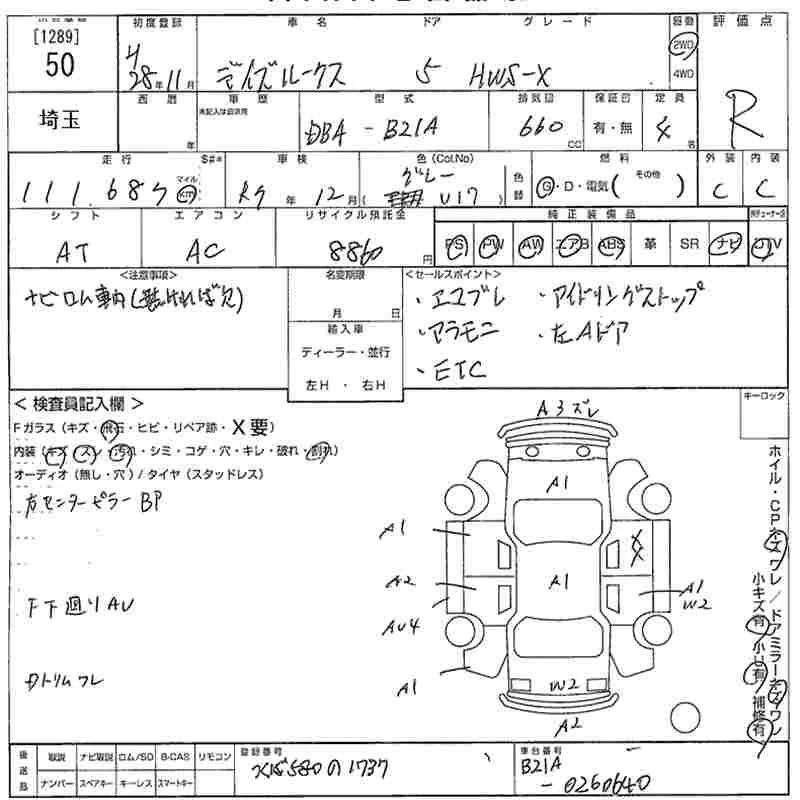 [1289]
50
埼玉
初度登録
H
28年11月
車名 ドア グレード
デイズルークス 5 HWS-X
駆動
2WD
4WD
評価点
R
西暦
年
車歴
未記入は自家用
型式
DBA - B21A
排気量
660
CC
保証書
有・無
定員
4
名
走行 S#*
111,687
マイル
km
車検
R9年12月
色(Col.No)
グレー
( U17 )
色替
燃料
G・D・電気( その他 )
外装
C
内装
C
シフト
AT
エアコン
AC
リサイクル預託金
8860
円
純正装備品
PS PW AW エアB ABS 革 SR ナビ TV
<注意事項>
ナビロム車内(無ければ欠)
名変期限
月 日
輸入車
ディーラー・並行
左H・右H
<セールスポイント>
・エコブレ ・アイドリングストップ
・アラモニ ・左Aドア
・ETC
キーロック
<検査員記入欄>
Fガラス(キズ・飛石・ヒビ・リペア跡・X要)
内装(キズ・スレ・汚れ・シミ・コゲ・穴・キレ・破れ・割れ)
オーディオ(無し・穴)/タイヤ(スタッドレス)
右センターピラー BP
F下廻りAU
内トリムワレ
A3ズレ
A1
A1
XX
A2
A1
A1
W2
AU4
A1
W2
A2
ホイル・CPキズワレ/ドアミラーキズワレ
小キズ有 小U有 補修有
後送品
取説 ナビ取説 ロム/SD B-CAS リモコン
ナンバー スペアキー キーレス スマートキー
登録番号
580 の 1737
車台番号
B21A
-0260640